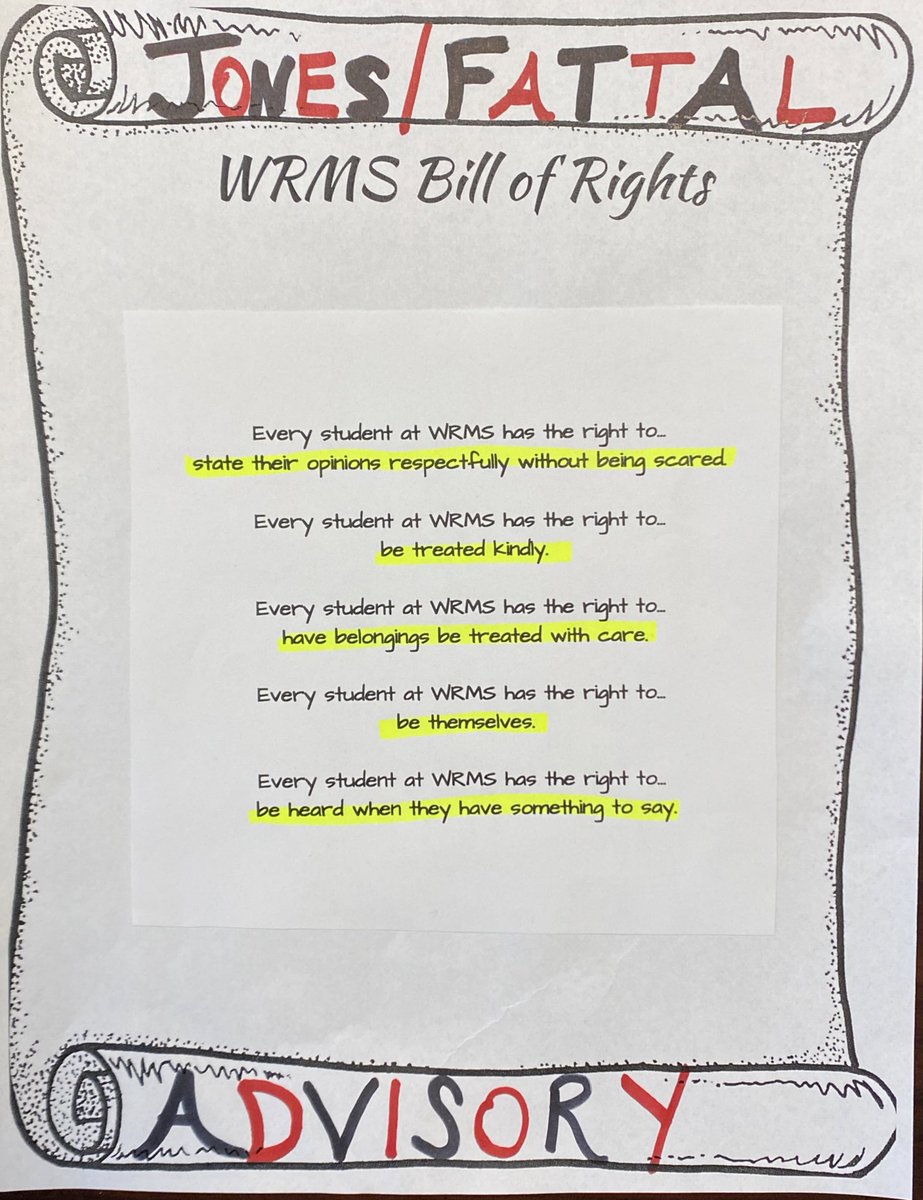 JONES/FATTAL
WRMS Bill of Rights
Every student at WRMS has the right to...
state their opinions respectfully without being scared.
Every student at WRMS has the right to...
be treated kindly.
Every student at WRMS has the right to...
have belongings be treated with care.
Every student at WRMS has the right to...
be themselves.
Every student at WRMS has the right to...
be heard when they have something to say.
ADVISORY